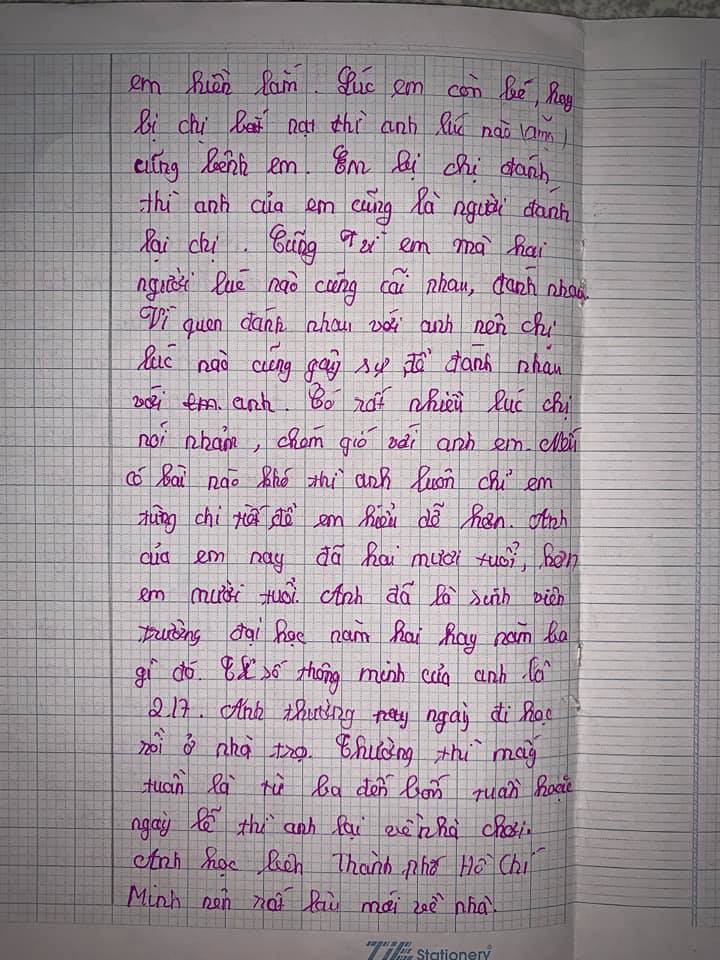 em hiền lắm. Lúc em còn bé, hay
bị chị bắt nạt thì anh lúc nào
cũng bênh em. Em bị chị đánh
thì anh của em cũng là người đánh
lại chị. Cũng vì em mà hai
người lúc nào cũng cãi nhau, đánh nhau.
Vì quen đánh nhau với anh nên chị
lúc nào cũng gây sự để đánh nhau
với em. anh. Có rất nhiều lúc chị
nói nhảm, chém gió với anh em. Mỗi
có bài nào khó thì anh luôn chỉ em
từng chi tiết để em hiểu dễ hơn. Anh
của em nay đã hai mươi tuổi, hơn
em mười tuổi. Anh đã là sinh viên
trường đại học năm hai hay năm ba
gì đó. Chỉ số thông minh của anh là
217. Anh thường ngày đi học
rồi ở nhà trọ. Thường thì mấy
tuần là từ ba đến bốn tuần hoặc
ngày lễ thì anh lại về nhà chơi.
Anh học bên Thành phố Hồ Chí
Minh nên rất lâu mới về nhà.
TTE Stationery